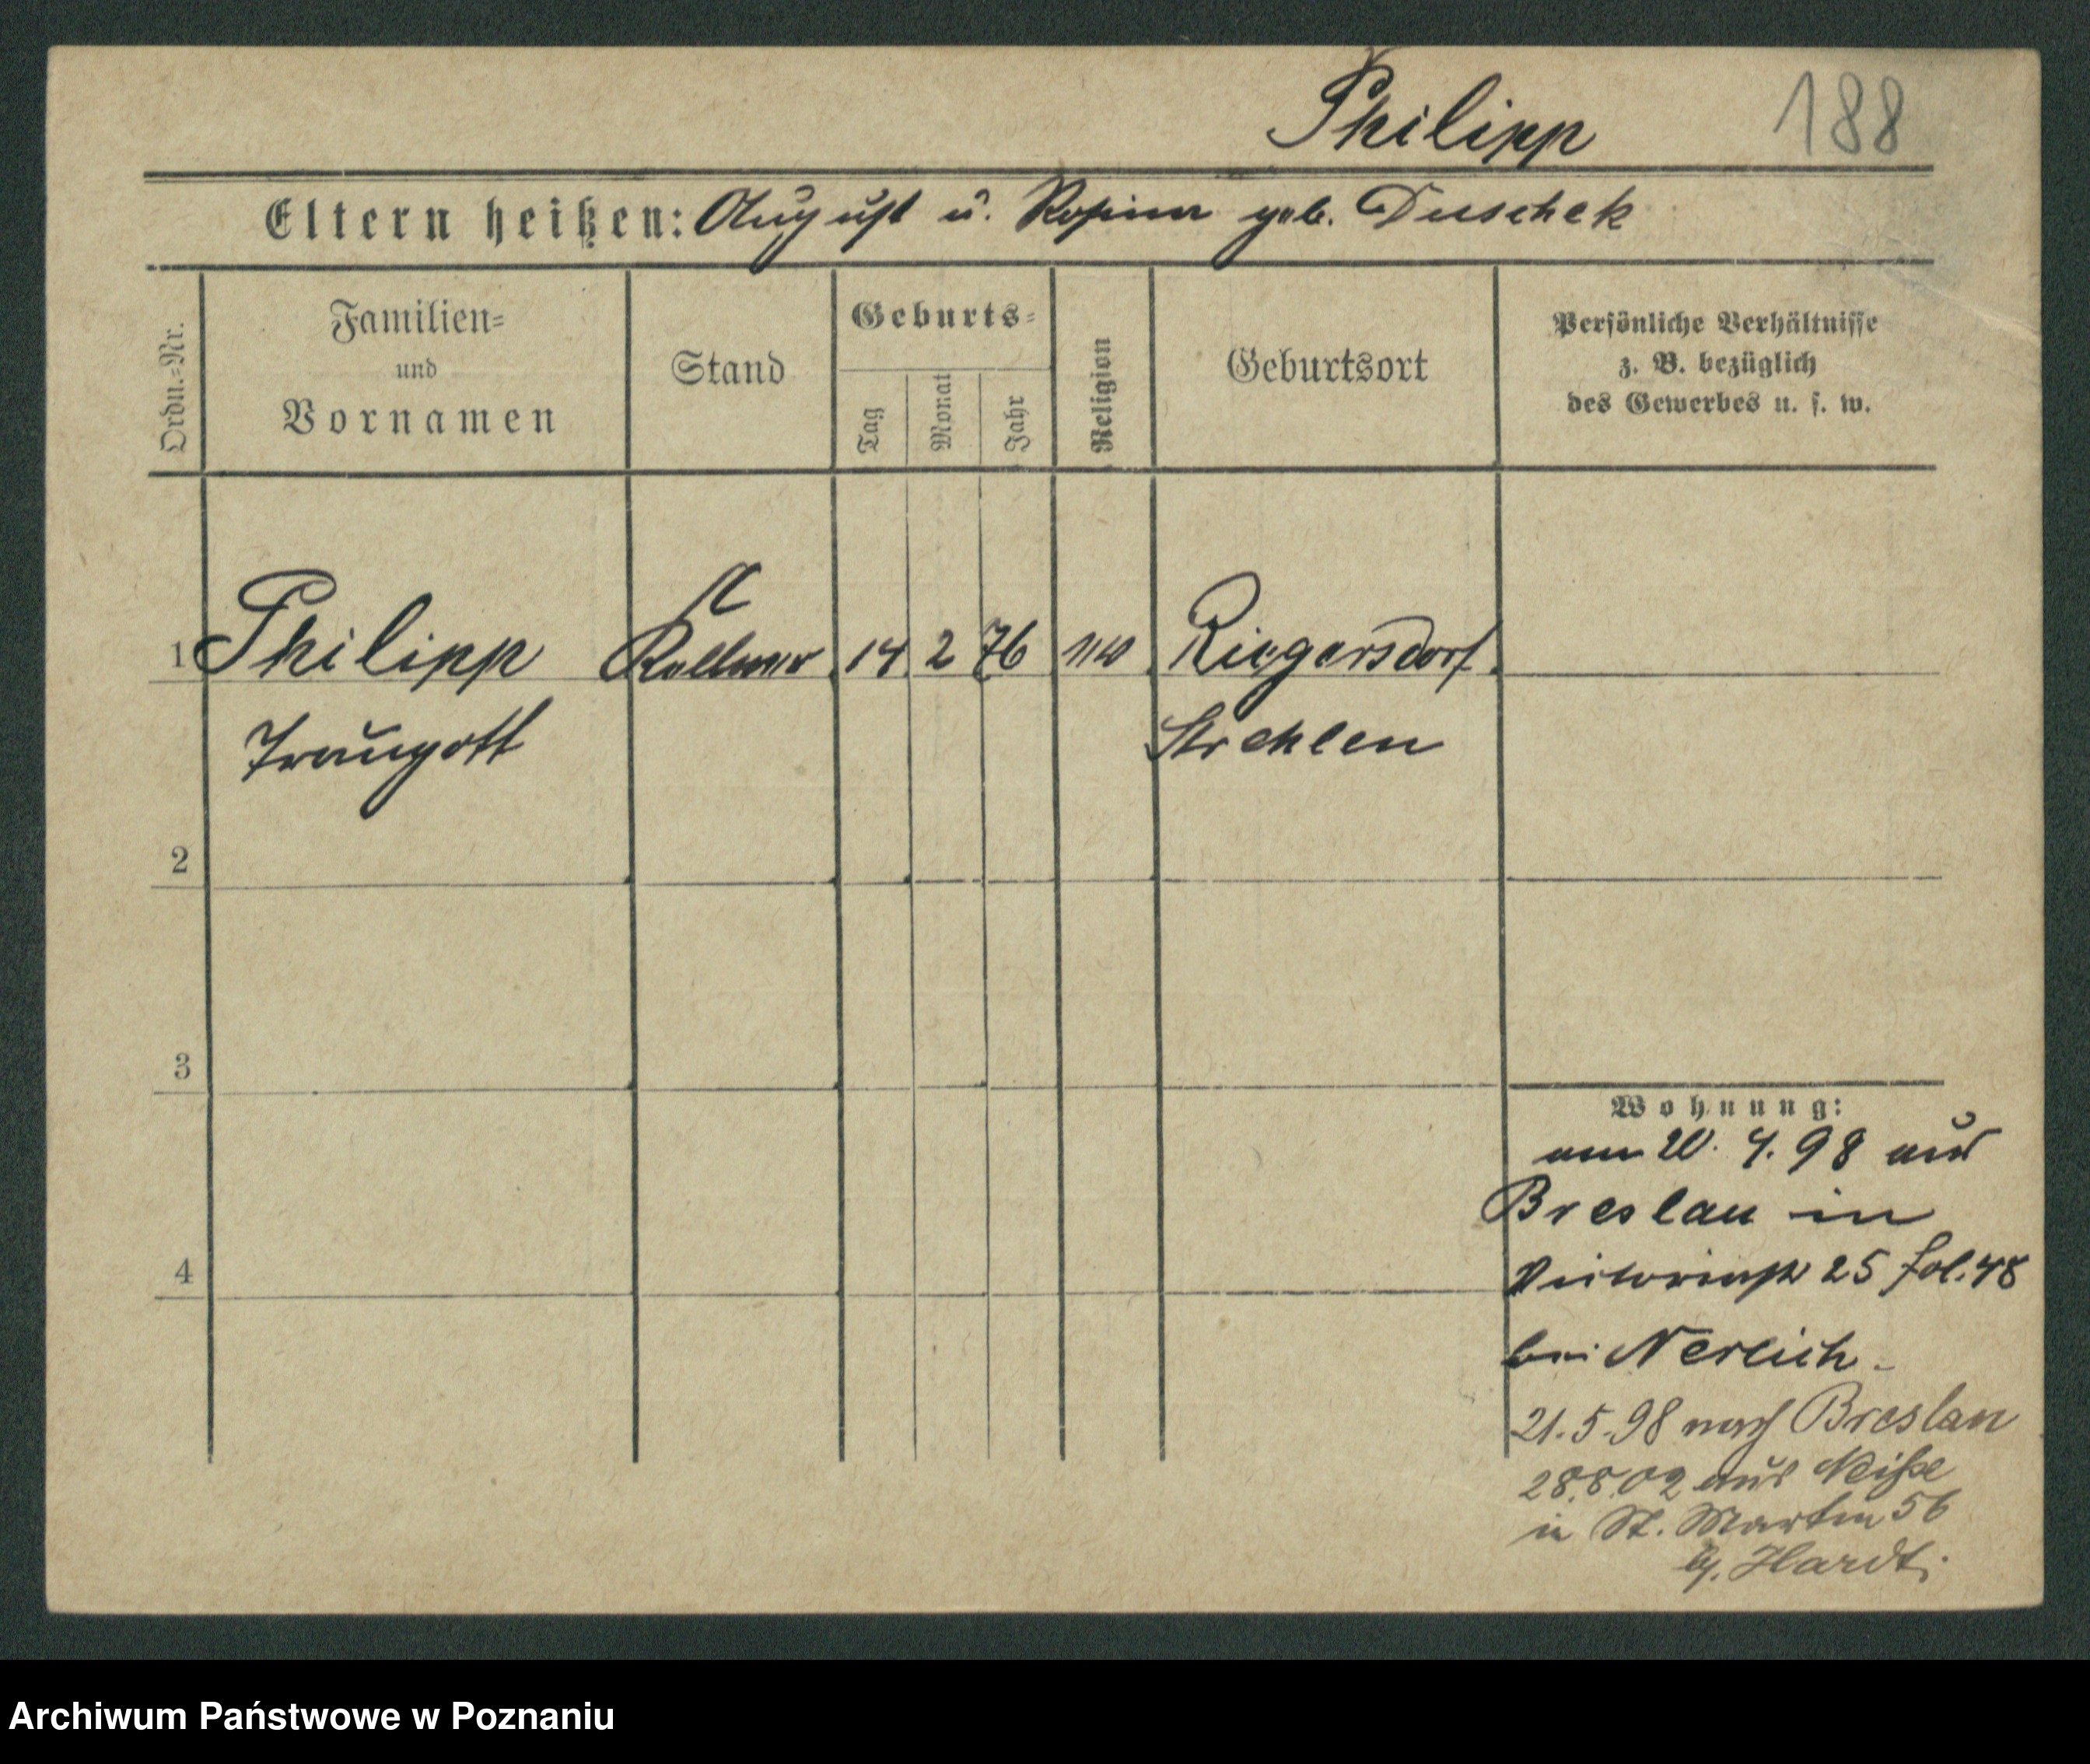 Philipp 188
Eltern heißen: August u. Rosina geb. Duschek
Ordn.=Nr.
Familien=
und
Vornamen
Stand
Geburts=
Tag
Monat
Jahr
Religion
Geburtsort
Persönliche Verhältnisse
z. B. bezüglich
des Gewerbes u. s. w.
1 Philipp Kellner 14 2 76 Riegersdorf
Traugott Strehlen
2
3
4
Wohnung:
am 20. 4. 98 aus
Breslau in
Victoriastr 25 fol. 48
bei Nerlich.
21.5.98 nach Breslau
28.8.02 aus Neiße
in St. Martin 56
b/. Hardt.
Archiwum Państwowe w Poznaniu